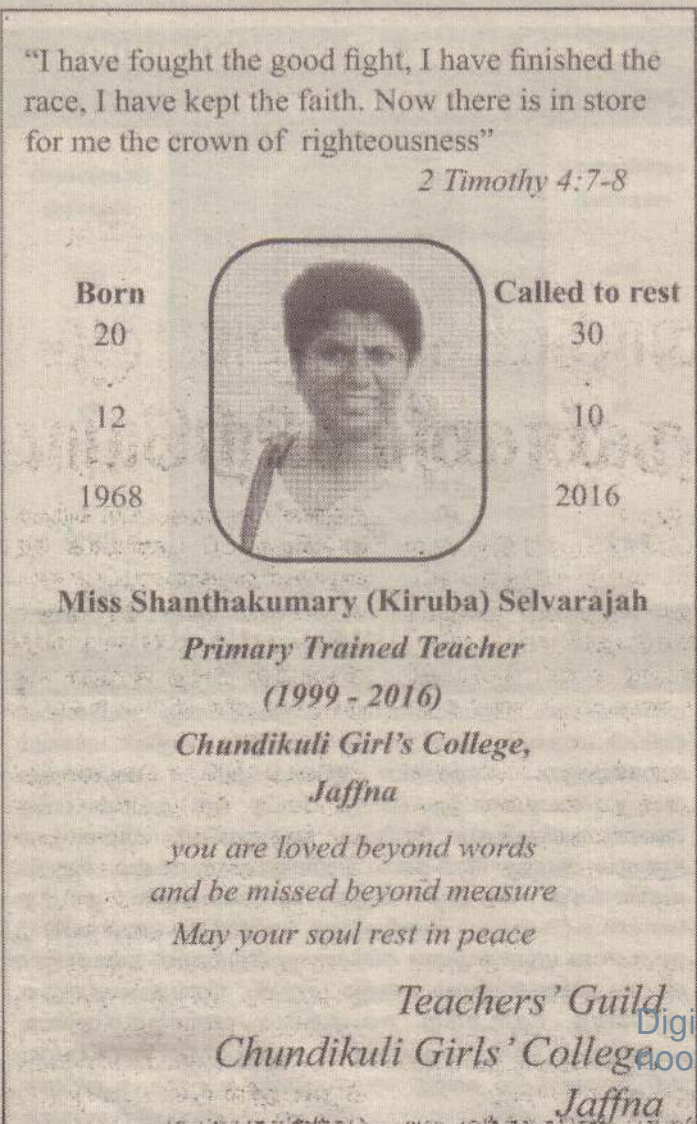 “I have fought the good fight, I have finished the
race, I have kept the faith. Now there is in store
for me the crown of righteousness”
2 Timothy 4:7-8
Born
20
.
12
.
1968
Called to rest
30
.
10
.
2016
Miss Shanthakumary (Kiruba) Selvarajah
Primary Trained Teacher
(1999 - 2016)
Chundikuli Girl's College,
Jaffna
you are loved beyond words
and be missed beyond measure
May your soul rest in peace
Teachers' Guild
Chundikuli Girls' College,
Jaffna
Digi
noo